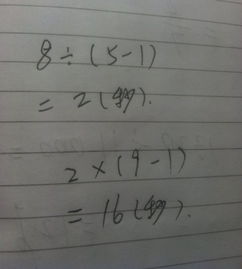 8÷(5-1)
=2( ).
2×(9-1)
=16( ).